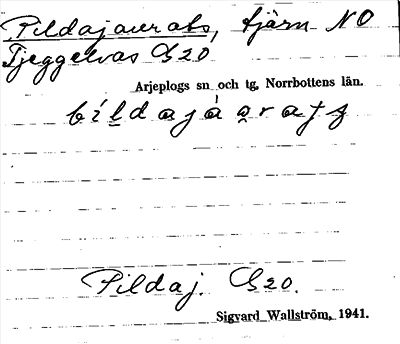 Pildajaurats, tjärn NO
Tjeggelvas G20
Arjeplogs sn och tg, Norrbottens län.
Pildaj. G20.
Sigvard Wallström, 1941.